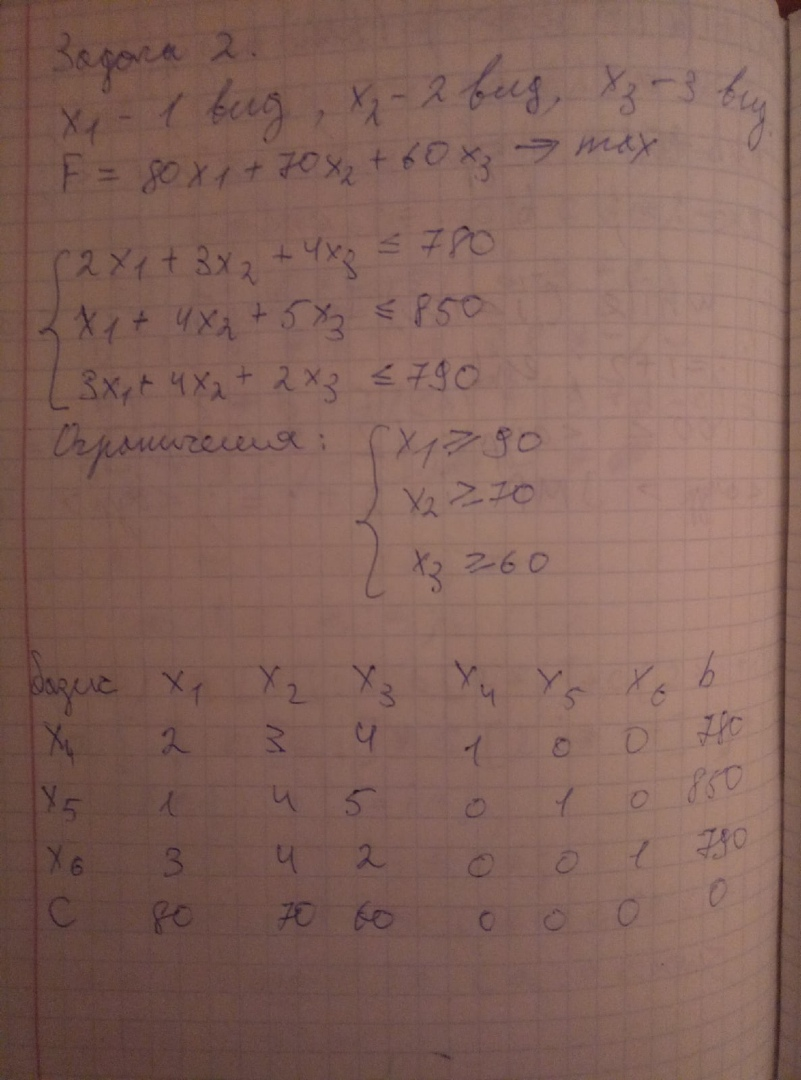 Задача 2.
x₁ - 1 вид, x₂ - 2 вид, x₃ - 3 вид
F = 80x₁ + 70x₂ + 60x₃ → max
2x₁ + 3x₂ + 4x₃ ≤ 780
x₁ + 4x₂ + 5x₃ ≤ 850
3x₁ + 4x₂ + 2x₃ ≤ 790
Ограничения: x₁ ≥ 90
x₂ ≥ 70
x₃ ≥ 60
базис x₁ x₂ x₃ x₄ x₅ x₆ b
x₄ 2 3 4 1 0 0 780
x₅ 1 4 5 0 1 0 850
x₆ 3 4 2 0 0 1 790
C 80 70 60 0 0 0 0